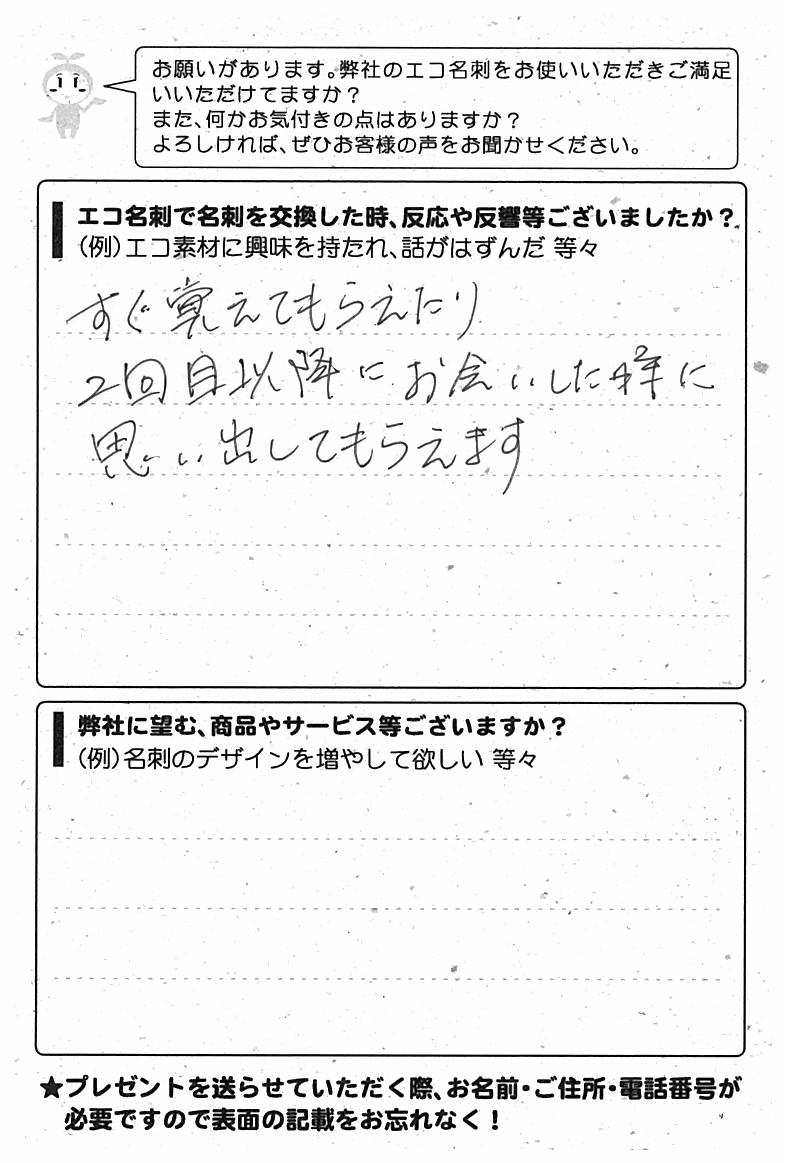 お願いがあります。弊社のエコ名刺をお使いいただきご満足
いいただけてますか？
また、何かお気付きの点はありますか？
よろしければ、ぜひお客様の声をお聞かせください。
エコ名刺で名刺を交換した時、反応や反響等ございましたか？
（例）エコ素材に興味を持たれ、話がはずんだ 等々
すぐ覚えてもらえたり
2回目以降にお会いした時に
思い出してもらえます
弊社に望む、商品やサービス等ございますか？
（例）名刺のデザインを増やして欲しい 等々
★プレゼントを送らせていただく際、お名前・ご住所・電話番号が
必要ですので表面の記載をお忘れなく！